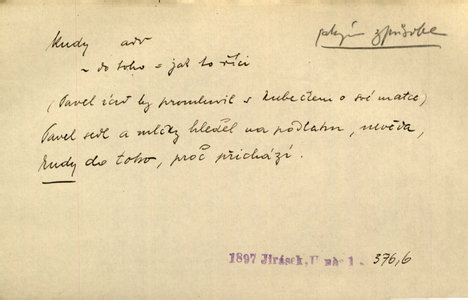 kudy adv jakým způsobem
~ do toho = jak to říci
(Pavel by promluvil s Kubečkem o své matce)
Pavel sedl a mlčky hleděl na podlahu, nevěda,
kudy do toho, proč přichází.
1897 Jirásek, U nás 1 - 376,6